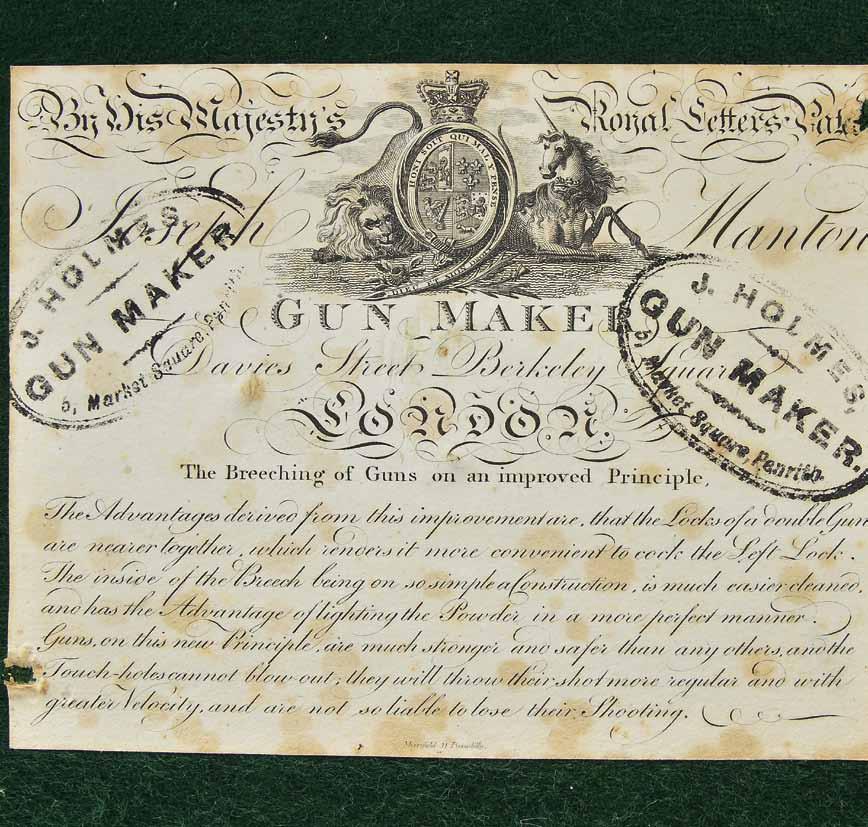 By His Majesty's Royal Letters Pate
HONI SOIT QUI MAL Y PENSE
Joseph Manton
GUN MAKER
Davies Street Berkeley Square
LONDON.
The Breeching of Guns on an improved Principle,
The Advantages derived from this improvement are, that the Locks of a double Gun
are nearer together, which renders it more convenient to cock the Left Lock.
The inside of the Breech being on so simple a Construction, is much easier cleaned
and has the Advantage of lighting the Powder in a more perfect manner.
Guns, on this new Principle, are much stronger and safer than any others, and the
Touch-holes cannot blow out; they will throw their shot more regular and with
greater Velocity, and are not so liable to lose their Shooting.
J. HOLMES,
GUN MAKER
5, Market Square, Penrith.
J. HOLMES,
GUN MAKER.
5, Market Square, Penrith.